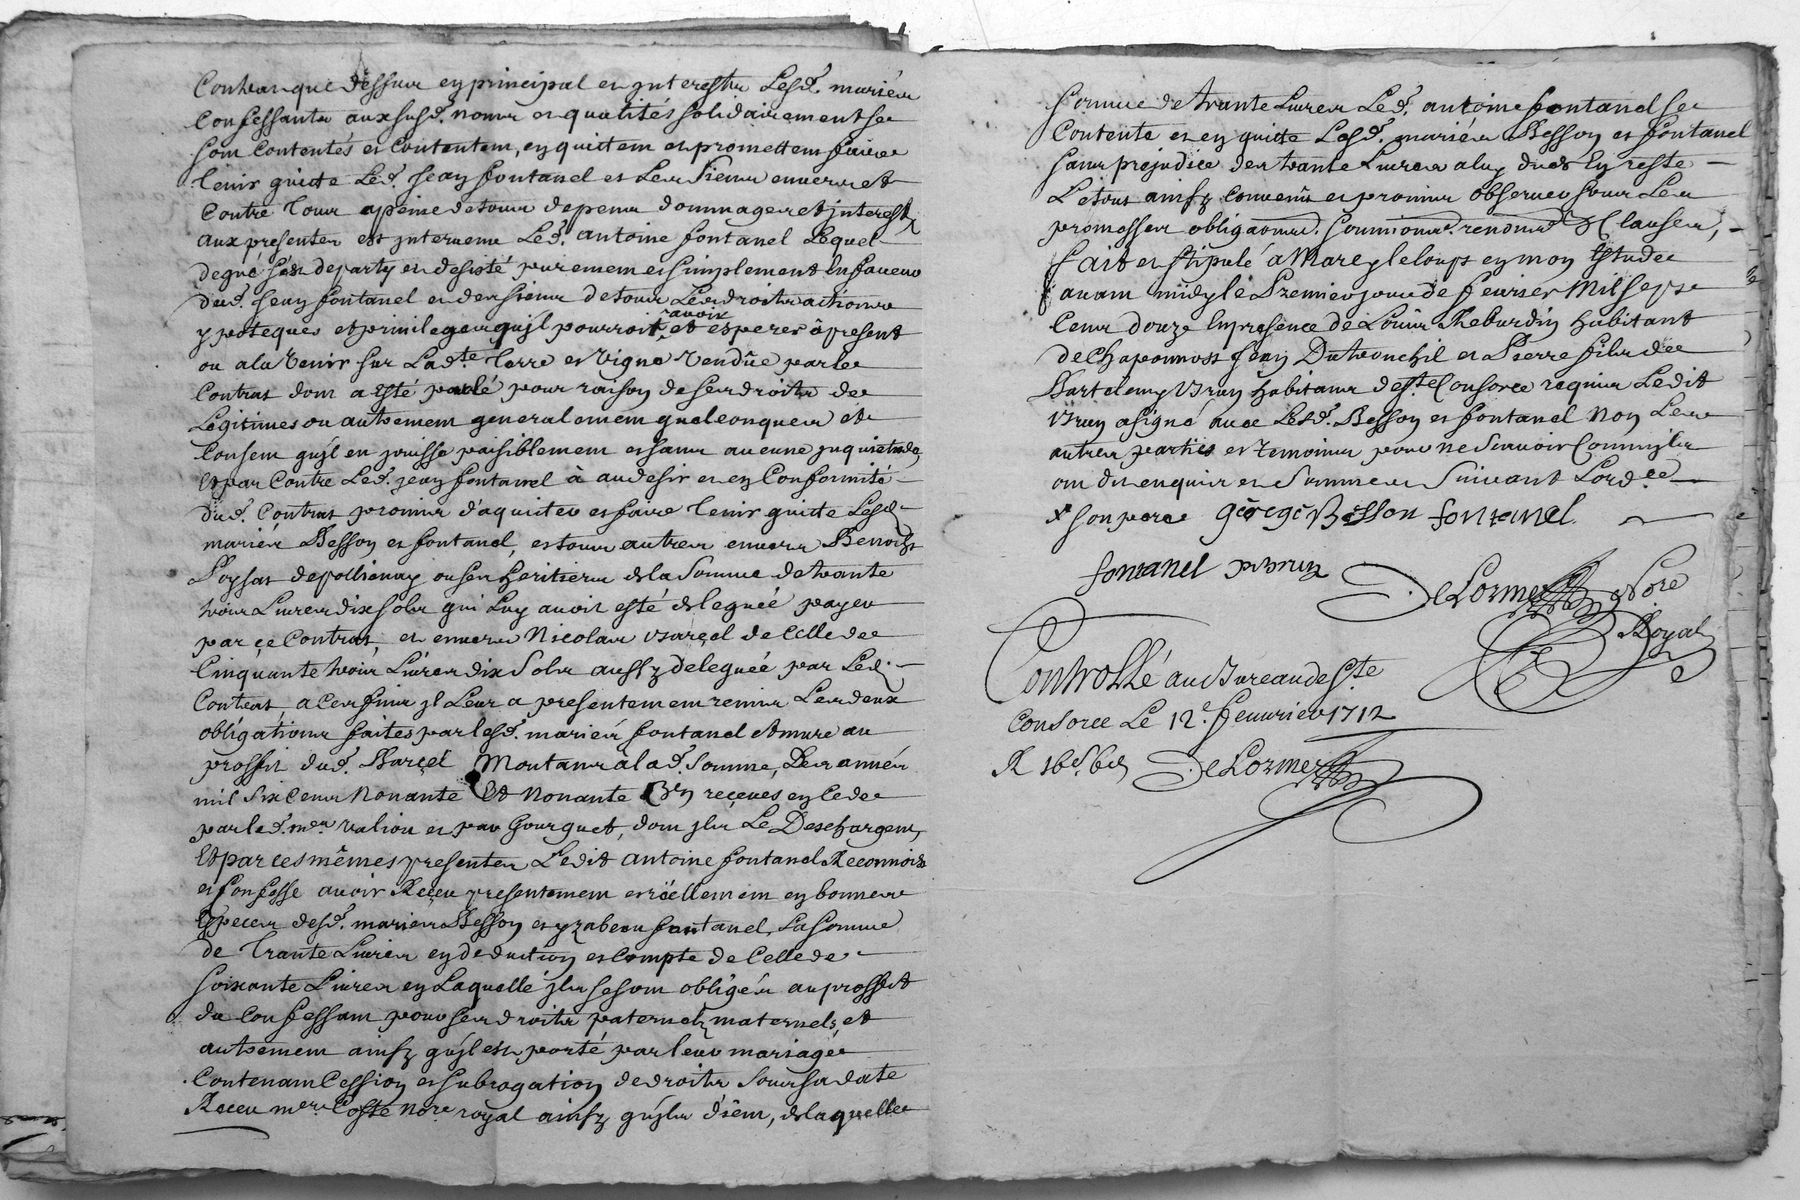 Contrauque dessus en principal et jnterestz Lesd. mariés
Confessants aux susd. noms et qualités solidairement se
sont Contentés et Contentent, en quittent et promettent faire
tenir quitte Led. Jean fontanel et Les Siens enuers et
Contre tous apeine de tous depens dommages et jnterest
aux presentes est jnteruenu Led. antoine fontanel Lequel
degré s'est departy et desisté purement et simplement En faueur
dud. Jean fontanel et des siens de tous Les droits actions
ypoteques et priuileges qu'jl pourroit auoir et esperer à present
ou a la Venir sur Lad.te Terre et Vigne Vendüe par le
Contrat dont a esté parlé pour raison de ses droits de
Legitimes ou autrement generalement quelconques et
Consent qu'jl en jouisse paisiblement et sans aucune jnquietude,
Et par Contre Led. jean fontanel à au desir et en Conformité
dud. Contrat promis d'aquitter et faire tenir quitte Lesd.
mariés Besson et fontanel, et tous autres enuers Benoist
Poysat de pollionay ou ses heritiers de la Somme de trante
trois Liures dix sols qui Luy auoit esté deleguée payer
par ce Contrat, et enuers Nicolas Barçel de Celle de
Cinquante trois Liures dix Sols aussy deleguée par Led.
Contrat, a Ces fins jl Leur a presentement remis Les deux
obligations faites par lesd. mariés fontanel et mure au
proffit dud. Barçel Montants à lad. Somme, Des années
mil six Cens Nonante Et Nonante receues en Cede
par led. mes Valiou et par Gourguet, dont jls Le Deschargent,
Et par ces mêmes presentes Ledit antoine fontanel Reconnoist
et Confesse auoir Receu presentement et reéllement en bonnes
Especes desd. mariés Besson et yzabeau fontanel, La Somme
de Trante Liures en deduction et Compte de Celle de
soixante Liures en Laquelle jls se sont obligés au proffit
du Confessant pour ses droits paternels maternels, et
autrement ainsy qu'jl est porté par leur mariage
Contenant Cession et subrogation de droits Sous sa date
Receu me Coste nore royal ainsy qu'jls disent, de laquelle
somme de trante Liures Led. antoine fontanel se
Contente et en quitte Lesd. mariés Besson et fontanel
sans prejudice des trante Liures a luy dues En reste
Le tout ainsy Conuenu et promis obseruer sous Les
promesses obligaons. soumions. renons. & Clauses,
fait et stipulé à Marcy le loup en mon Estude
auant midy le Premier jour de feurier Mil sept
Cens douze En presence de Loüis Reburdin habitant
de Chaponnost Jean Dutronchil et Pierre fils de
Bartelemy Brun habitans de Ste Consorce requis Ledit
Brun a signé auec Lesd. Besson et fontanel Non Les
autres parties et temoins pour ne Sauoir Comme jls
ont dit enquis et Sommes Suiuant Lord.ce
x son pere gèregè Besson fontanel
fontanel p brun
DeLorme Nore
Royal
Controllé au Bureau de Ste
Consorce Le 12e. feurier 1712
R 16s. 6d DeLorme